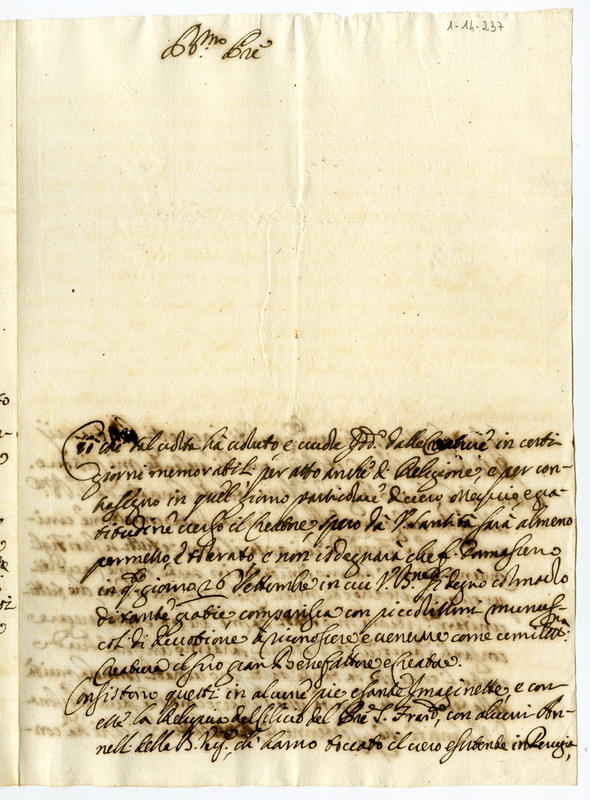 1-14-237
B.mo Pre
Ciò che tal volta hà voluto e vuole Idd.o dalle Creature in certi
giorni memorabili per atto anche di Religione, e per con-
trasegno in quel giorno particolare di vero ossequio, e gra-
titudine verso il Creatore, spero da V. Santità sarà almeno
permesso, e tolerato e non isdegnarà che f.
in q.o giorno 26 Settembre in cui V. B.ne si degnò colmarlo
di tante grazie, comparisca con piccolissimi munus-
coli di divotione à riconoscere e venerare come umiliss.ma
Creatura il suo gran Benefattore e Creatore.
Consistono questi in alcune pie e sante Imaginette, e con
esse la Reliquia del Cilicio del Pre S. Franc.o, con alcuni
della B. Verg. ch' hanno toccato il vero esistente in Perugia,